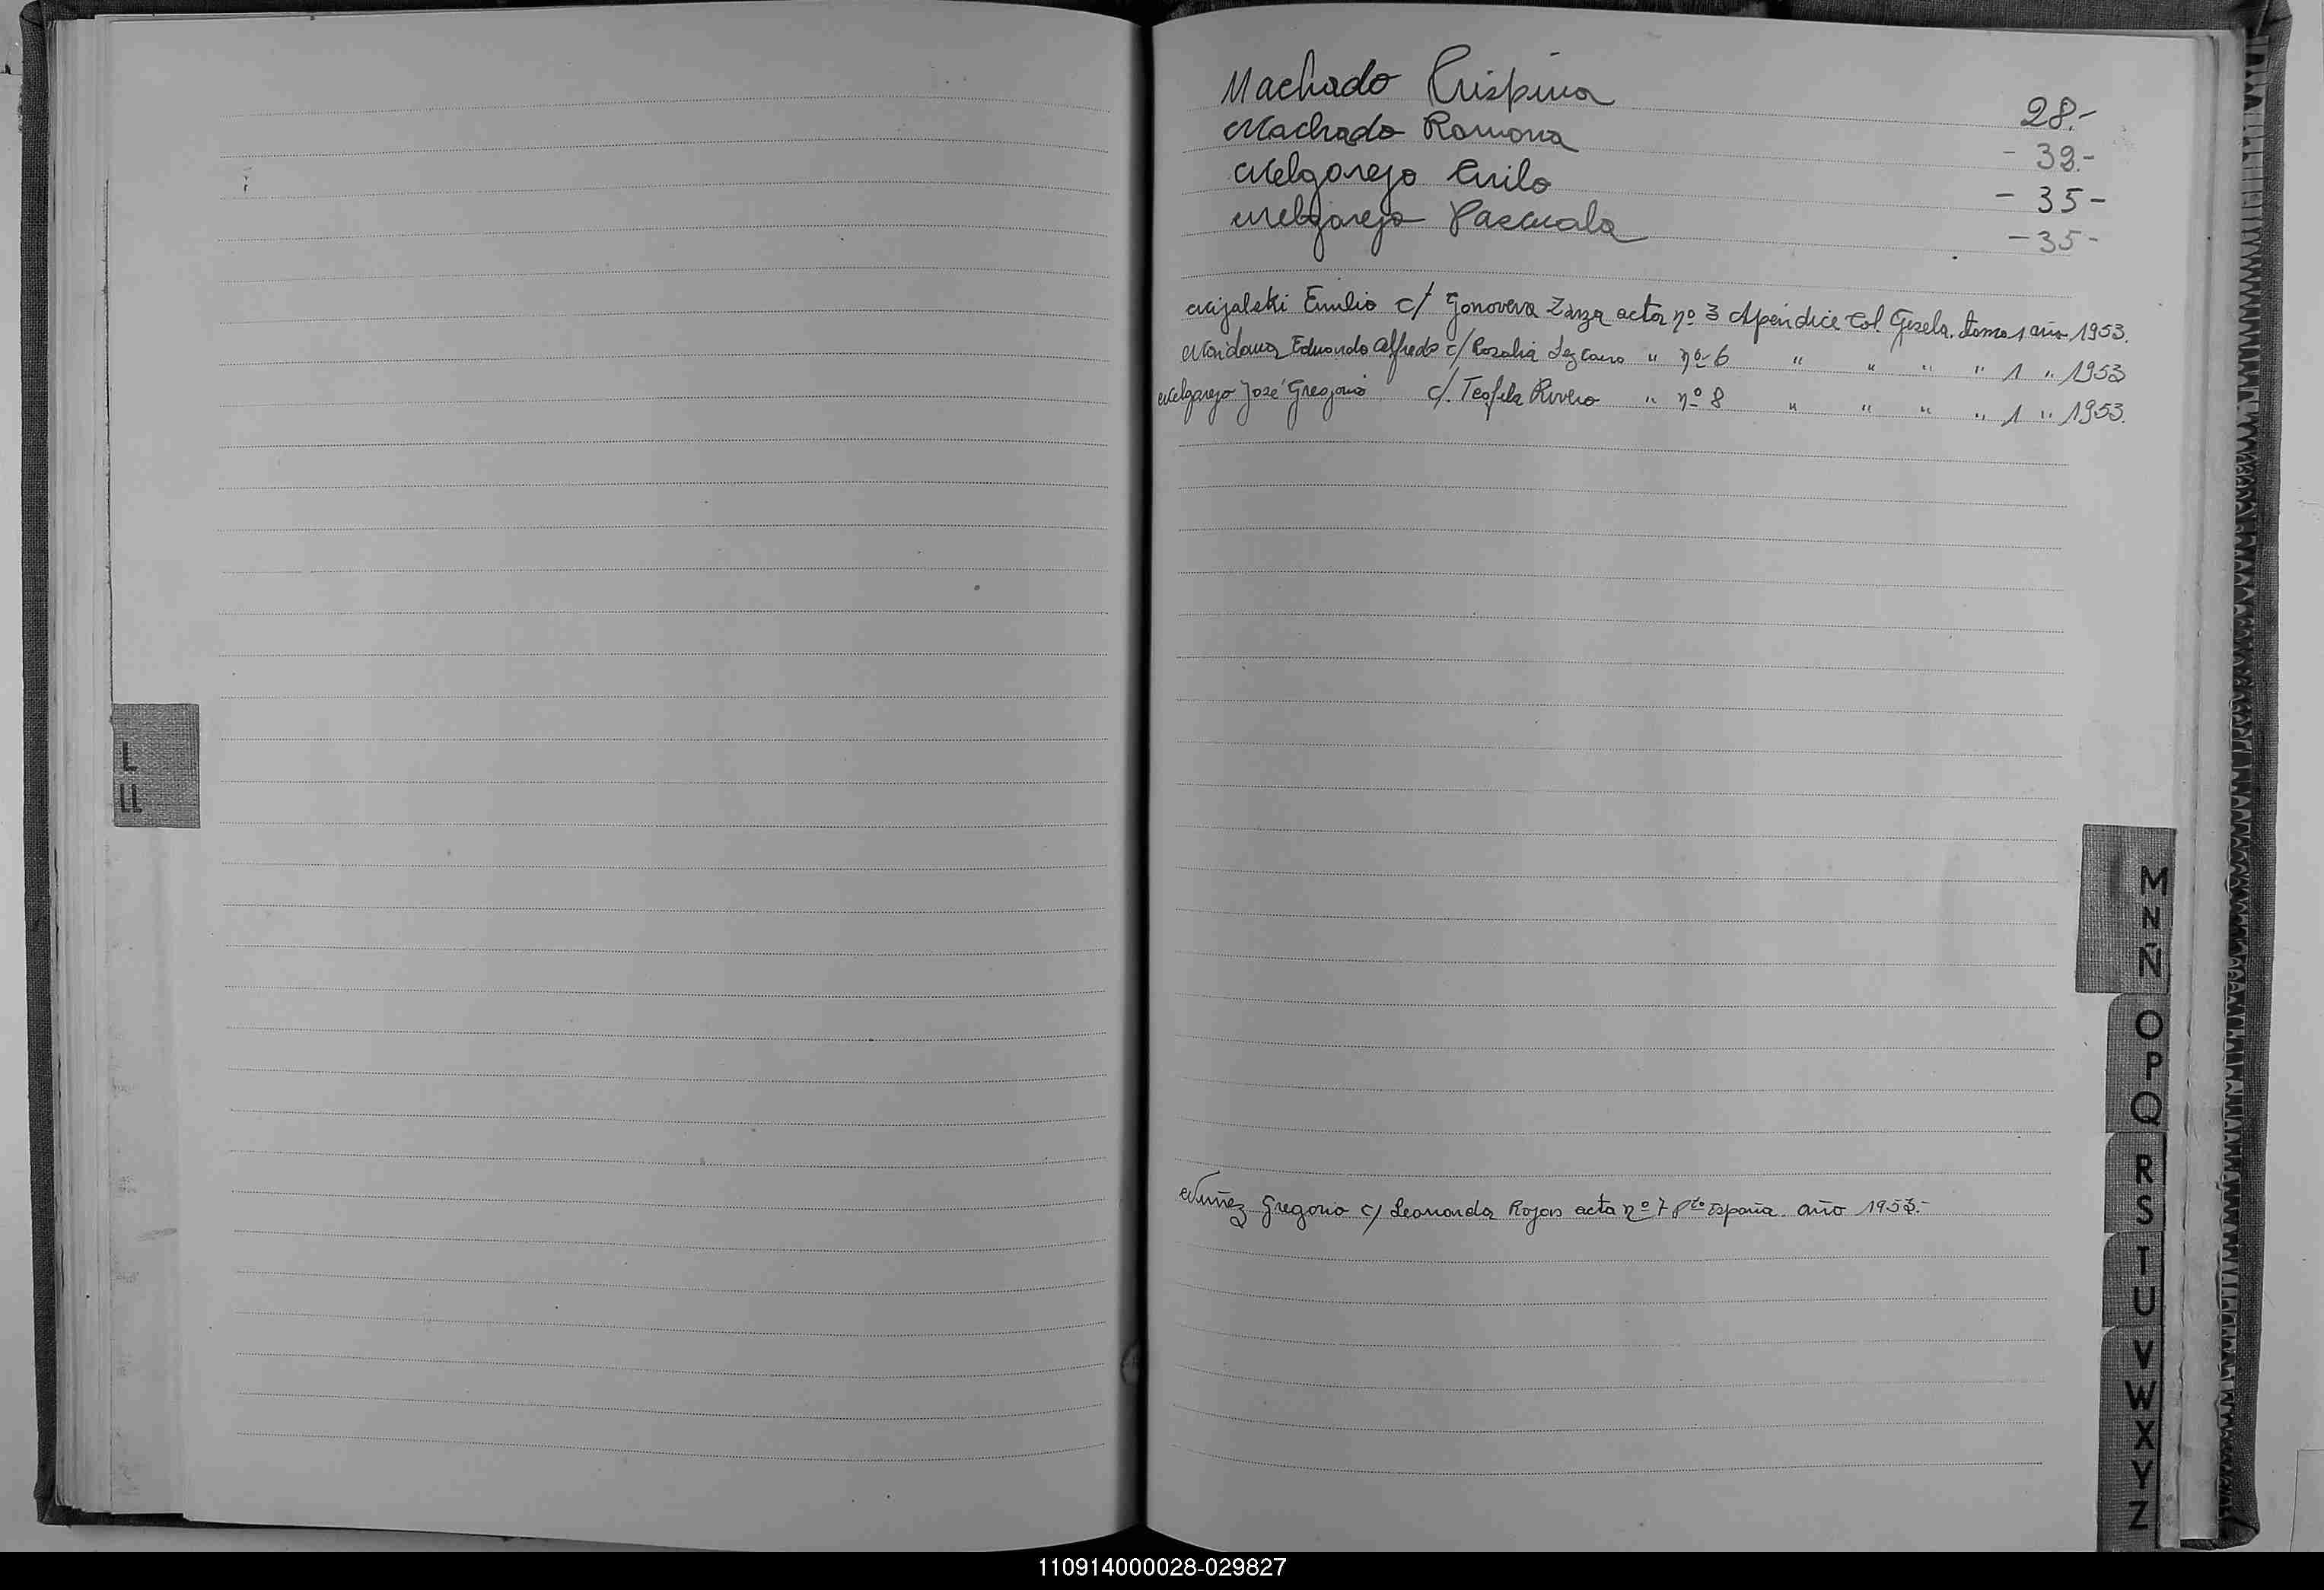 L
LL
Machado Crispina 28.-
Machado Ramona - 39.-
Melgarejo Cirilo - 35 -
Melgarejo Pascuala - 35 -
Mijalski Emilio c/ Gonoveva Zarza acta nº 3 Apéndice Col Gisela. tomo 1 año 1953.
Maidana Eduardo Alfredo c/ Rosalia Lezcano " nº 6 " " " " 1 " 1953
Melgarejo José Gregorio c/. Teofila Rivero " nº 8 " " " " 1 " 1953.
Nuñez Gregorio c/ Leonarda Rojas acta nº 7 Pto España. año 1953.-
M
N
Ñ
O
P
Q
R
S
T
U
V
W
X
Y
Z
110914000028-029827